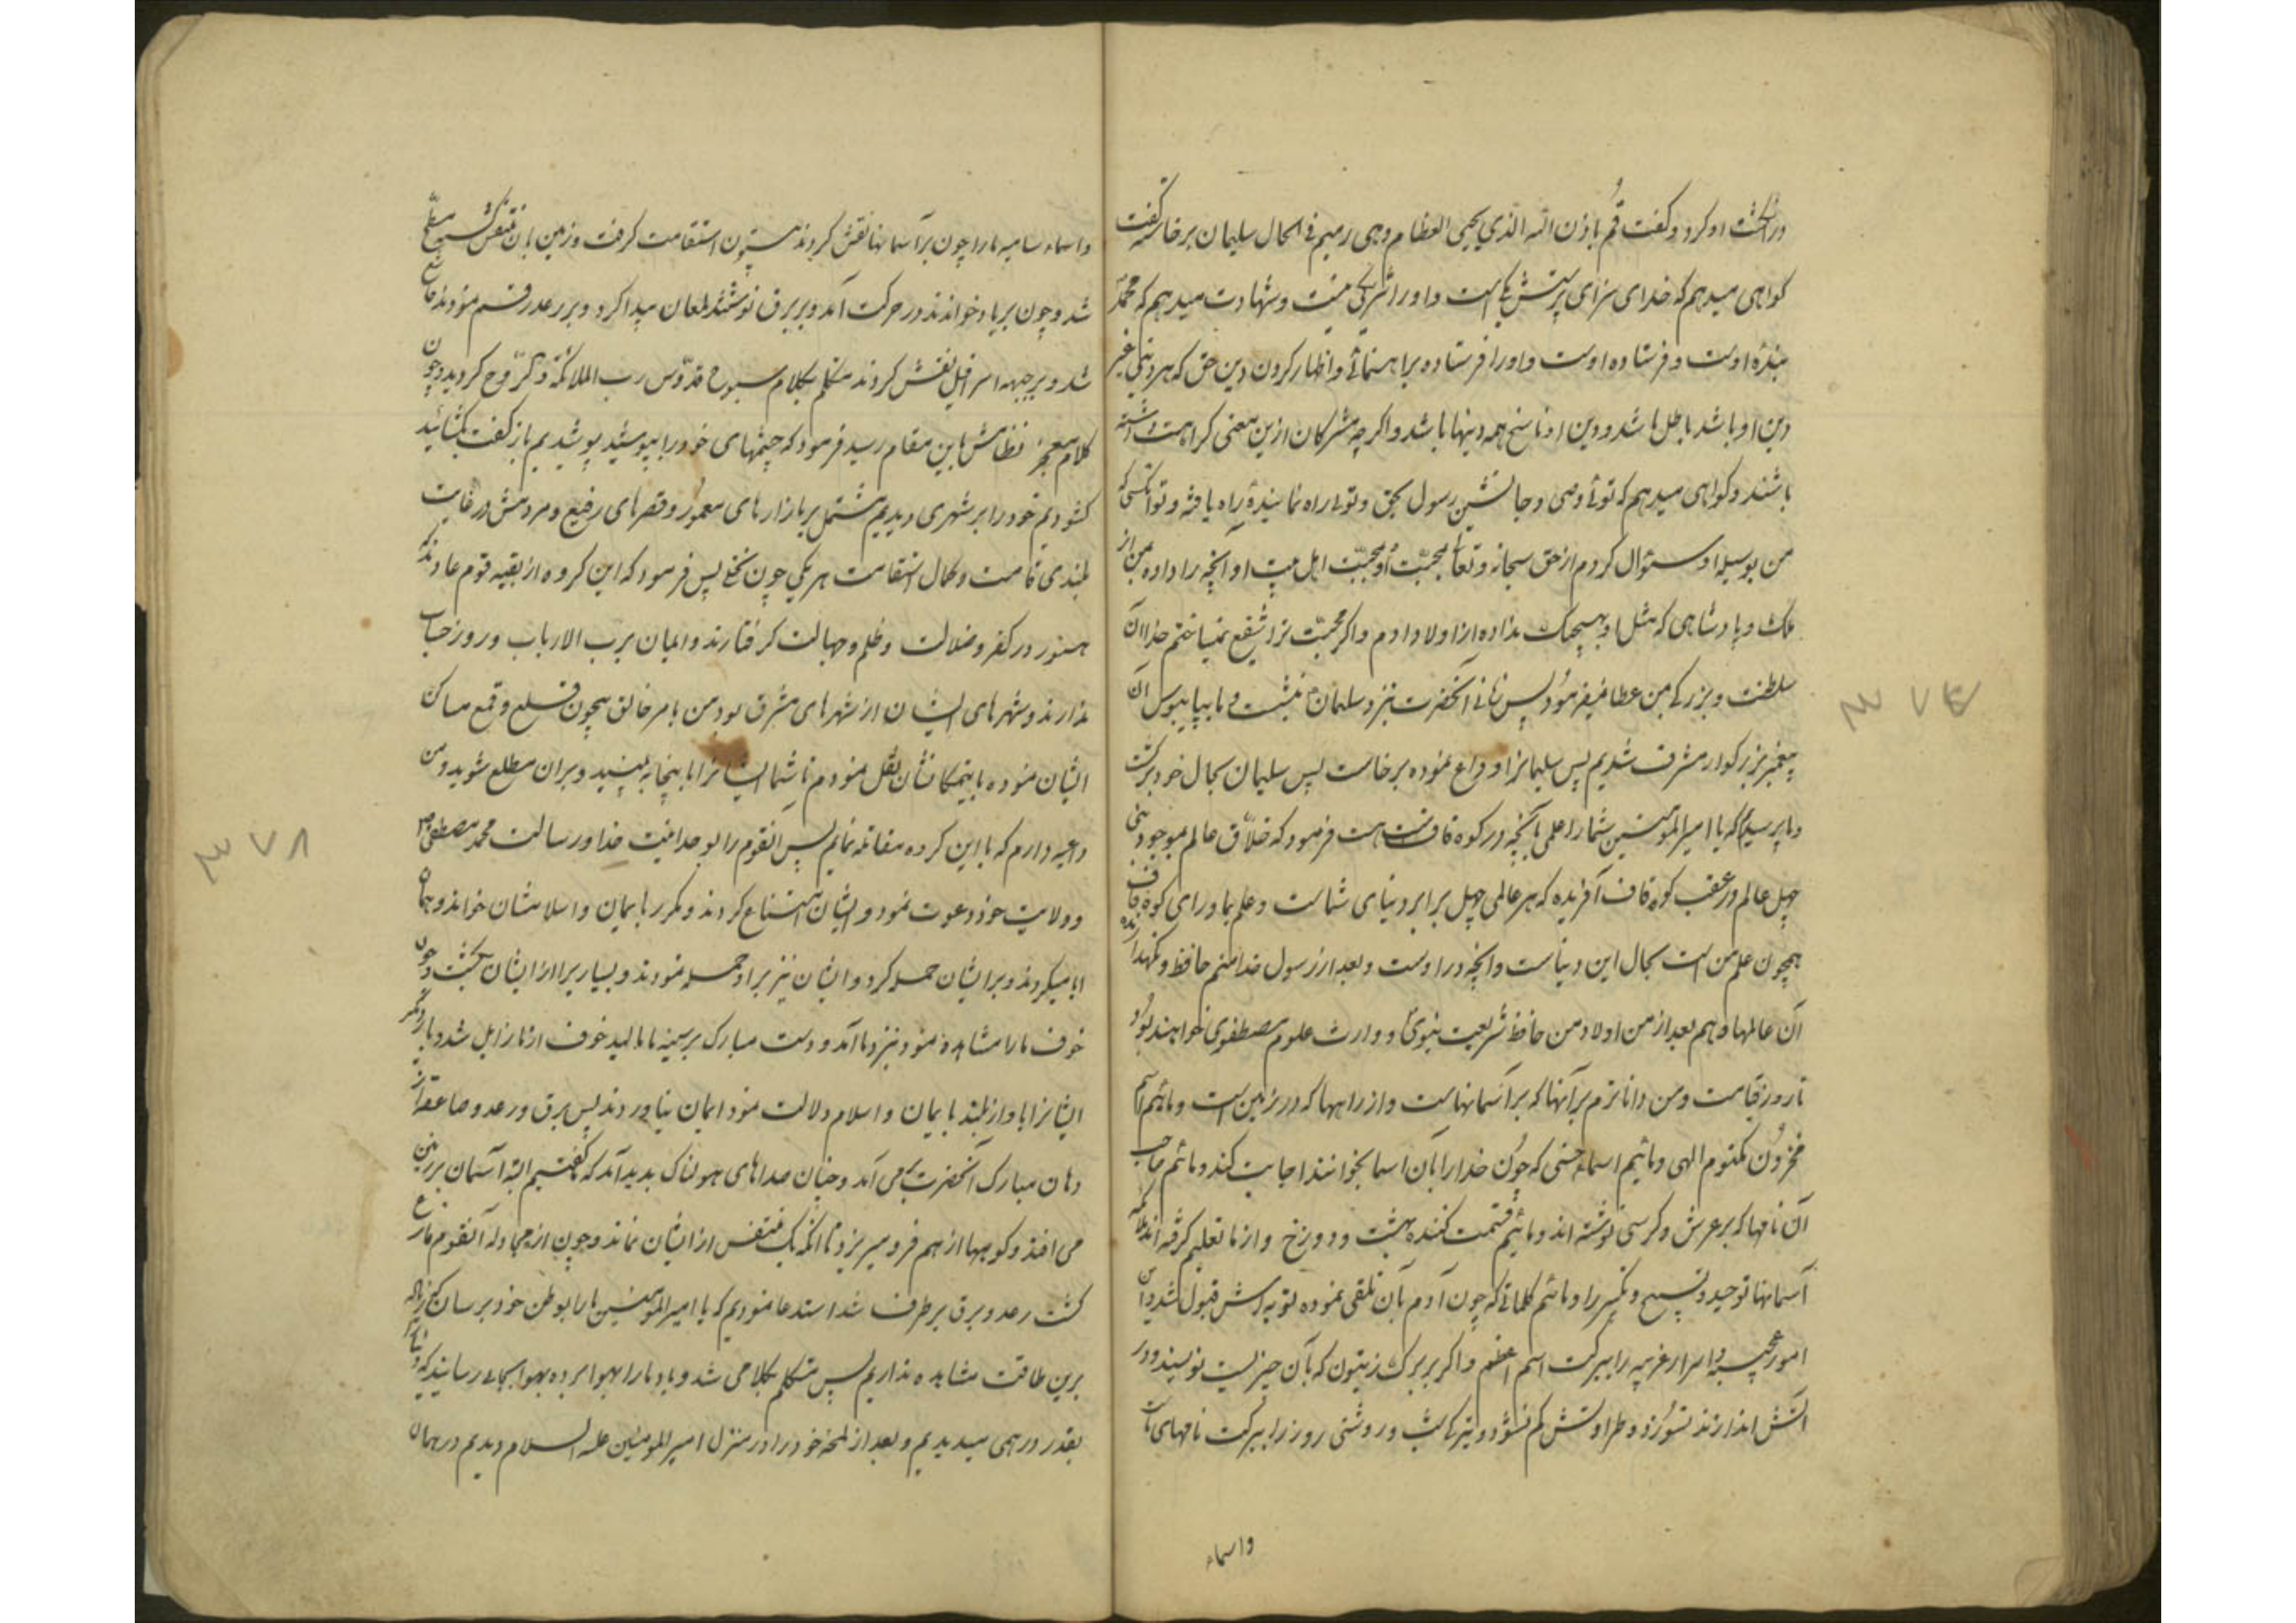 در انگشت او کرد و گفت قُم باذن الله الذی یحیی العظام وهی رمیم فی الحال سلیمان برخاسته گفت
کواهی میدهم که خدای سزای پرستش یکی است و او را شریکی نیست و شهادت میدهم که محمد
بندهٔ اوست و فرستاده اوست و او را فرستاده براهنمائی و اظهار کردن دین حق که هر دینی غیر
دین او باشد باطل باشد و دین او ناسخ همه دینها باشد و اکر چه مشرکان ازین معنی کراهت داشته
باشند و کواهی میدهم که توئی وصی و جانشین رسول بحق و توئی راه نمایندهٔ راه یافته و تو آنکسی که
من بوسیله او سئوال کردم از حق سبحانه و تعالی بمحبّت او و محبّت اهل بیت او آنچه را داده بمن از
ملک و پادشاهی که مثل او بهیچیک نداده از اولاد ادم و اکر محبّت ترا شفیع نمیساختم خدا آن
سلطنت و بزرکی بمن عطا نمیفرمود پس ثانی آنحضرت بنزد سلیمان بنشست و ما بپایبوس آن
پیغمبر بزرکوار مشرف شدیم پس سلیمانرا وداع نموده برخاست پس سلیمان بحال خود برکشت
و ما پرسیدیم که یا امیرالمؤمنین شما را علمی بآنچه در کوه قاف است هست فرمود که خلاّق عالم بموجودیّتی
چهل عالم در عقب کوه قاف آفریده که هر عالمی چهل برابر دنیای شماست و علم بماورای کوه قاف
همچون علم من است بحال این دنیاست و آنچه در اوست و بعد از رسول خدا منم حافظ و نکهدارنده
آن عالمها و هم بعد از من اولاد من حافظ شریعت نبوی و وارث علوم مصطفوی خواهند بود
تا روز قیامت و من داناترم برآنها که بر آسمانهاست و از راهها که در زمین است و مائیم اسم
مخزون مکتوم الهی و مائیم اسماء حسنی که چون خدا را بآن اسما بخوانند اجابت کند و مائیم صاحب
آن نامها که بر عرش و کرسی نوشته اند و مائیم قسمت کننده بهشت و دوزخ و از ما تعلیم کرفته اند ملائکه
آسمانها توحید و تسبیح و تکبیر را و مائیم کلماتی که چون آدم بآن تلقی نموده توبه اش قبول شد و این
امور عجیبه و اسرار غریبه را ببرکت اسم اعظم و اکر بر برک زیتون که بآن چیزیست نویسند و در
آتش اندازند نسوزد و طراوتش کم نشود و تیرکی شب و روشنی روز را ببرکت نامهای ماست
واسماء
و اسماء سامیه ما را چون بر آسمانها نقش کردند بیستون استقامت کرفت و زمین بآن منقش شد مسطّح
شد و چون بر باد خواندند در حرکت آمد و بر برق نوشتند لمعان پیدا کرد و بر رعد رقم نمودند خاشع
شد و بر جبهه اسرافیل نقش کردند متکلم بکلام سبوح قدّوس رب الملائکة و الرّوح کردید و چون
کلام معجز نظامش باین مقام رسید فرمود که چشمهای خود را بپوشید پوشیدیم باز کفت بکشائید
کشودیم خود را بر شهری دیدیم مشتمل بر بازارهای معمور و قصرهای رفیع و مردمش در غایت
بلندی قامت و کمال استقامت هر یکی چون نخلی پس فرمود که این کروه از بقیه قوم عادند که
هنوز در کفر و ضلالت و ظلم و جهالت کرفتارند و ایمان برب الارباب و روز حساب
ندارند و شهرهای ایشان از شهرهای مشرق بود من بامر خالق بیچون قلع و قمع مساکن
ایشان نموده باینمکانشان نقل نمودم تا شما ایشانرا باینجا به بینید و بران مطلع شوید و من
داعیه دارم که با این کروه مقاتله نمایم پس آنقوم را بوحدانیت خدا و رسالت محمد مصطفی ص
و ولایت خود دعوت نمود و ایشان امتناع کردند و مکرر بایمان و اسلامشان خواند و همان
ابا میکردند و بر ایشان حمله کرد و ایشان نیز بر او حمله نمودند و بسیار برا از ایشان بکشت و چون
خوف ما را مشاهده نمود بنزد ما آمد و دست مبارک بر سینه ما مالید خوف از ما زایل شد و بار دیگر
ایشانرا باواز بلند بایمان و اسلام دلالت نمود ایمان نیاوردند پس برق و رعد و صاعقه از
دهان مبارک آنحضرت بر می آمد و چنان صداهای هولناک پدید آمد که کفتیم البته آسمان بر زمین
می افتد و کوهها از هم فرو میریزد تا آنکه یک متنفس از ایشان نماند و چون از مجادله آنقوم فارغ
کشت رعد و برق برطرف شد استدعا نمودیم که یا امیرالمؤمنین ما را بوطن خود برسان که زیاده
برین طاقت مشاهده نداریم پس متکلم بکلامی شد و باد ما را بهوا برده بهوا بجائی رسانید که دنیا را
بقدر درهمی میدیدیم و بعد از لمحه خود را در منزل امیر المومنین علیه السلام دیدیم در همان
۳۷۸